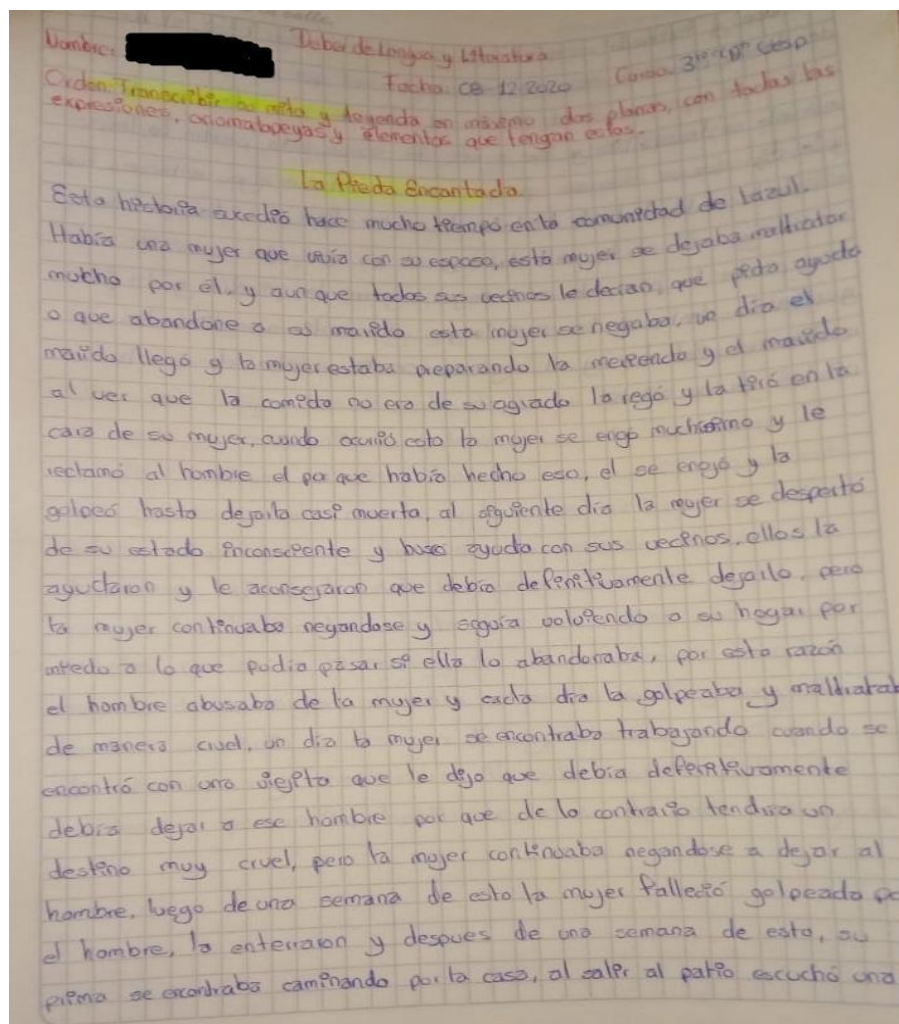 Nombre: Deber de Lengua y Literatura
Fecha: 08 12 2020 Curso: 3ro
Orden: Transcribir un mito y leyenda en máximo dos planas, con todas las
expresiones, onomatopeyas y elementos que tengan estas.
La Pieda Encantada
Esta historia sucedió hace mucho tiempo en la comunidad de Lazul.
Había una mujer que vivía con su esposo, esta mujer se dejaba maltratar
mucho por él, y aun que todos sus vecinos le decían, que pida ayuda
o que abandone a su marido esta mujer se negaba, un día el
marido llegó y la mujer estaba preparando la merienda y el marido
al ver que la comida no era de su agrado la regó y la tiró en la
cara de su mujer, cuando ocurrió esto la mujer se enojó muchísimo y le
reclamó al hombre el por que había hecho eso, el se enojó y la
golpeó hasta dejarla casi muerta, al siguiente día la mujer se despertó
de su estado inconsciente y buscó ayuda con sus vecinos, ellos la
ayudaron y le aconsejaron que debía definitivamente dejarlo, pero
la mujer continuaba negandose y seguía volviendo a su hogar por
miedo a lo que podía pasar si ella lo abandonaba, por esta razón
el hombre abusaba de la mujer y cada día la golpeaba y maltrataba
de manera cruel, un día la mujer se encontraba trabajando cuando se
encontró con una viejita que le dijo que debía definitivamente
debía dejar a ese hombre por que de lo contrario tendría un
destino muy cruel, pero la mujer continuaba negandose a dejar al
hombre, luego de una semana de esto la mujer falleció golpeada po
el hombre, la enterraron y despues de una semana de esto, su
prima se encontraba caminando por la casa, al salir al patio escuchó una